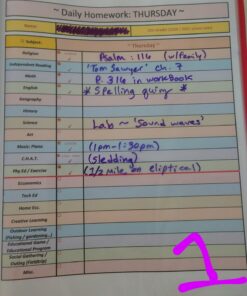 ~ Daily Homework: THURSDAY ~
Name:
Subject: ~ Thursday ~
Religion Psalm : 116 (w/family)
Independent Reading "Tom Sawyer" ch. 7
Math P. 316 in workbook
English * Spelling quiz *
Geography
History
Science Lab ~ "Sound waves"
Art
Music: Piano (1pm-1:30pm)
C.H.A.T. (sledding)
Phy.Ed / Exercise (1/2 mile on eliptical)
Economics
Tech Ed
Home Eco.
Creative Learning
Outdoor Learning
(Picking / gardening...)
Educational Game /
Educational Program
Social Gathering /
Outing (Fieldtrip)
Misc.
1